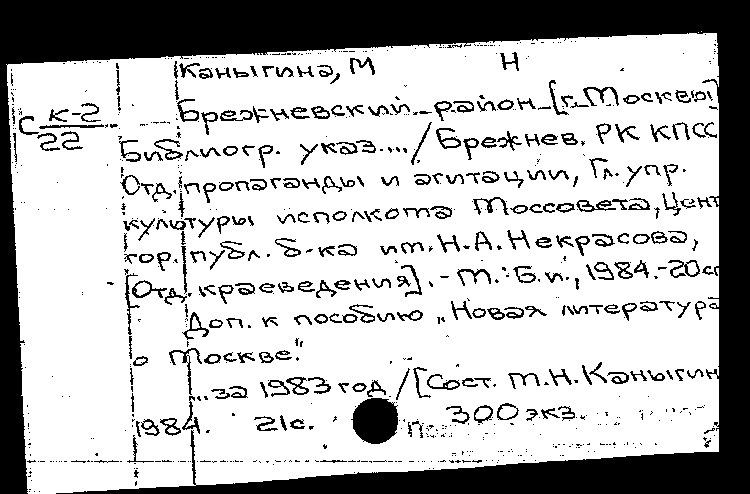 Каныгина, М Н
С к-2/22
Брежневский район [г. Москвы]
Библиогр. указ.... / Брежнев. РК КПСС
Отд. пропаганды и агитации, Гл. упр.
культуры исполкома Моссовета, Цент
гор. публ. б-ка им. Н.А. Некрасова,
[Отд. краеведения]. - М.: Б.и., 1984.-20см
Доп. к пособию „Новая литература
о Москве."
...за 1983 год / [Сост. М.Н. Каныгин
1984. 21с. 300 экз.